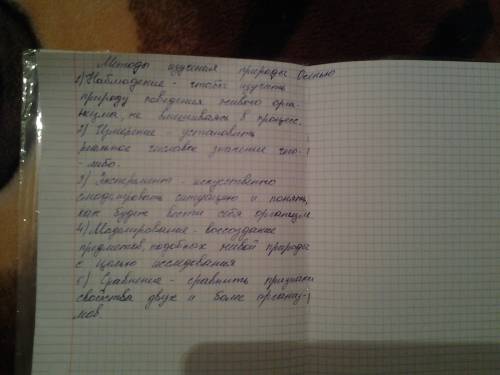 Методы изучения природы Осенью
1) Наблюдение - чтобы изучать
природу поведения живого орга-
низма, не вмешиваясь в процесс.
2) Измерение - установить
реальное числовое значение чего-
-либо.
3) Эксперимент - искусственно
смоделировать ситуацию и понять,
как будет вести себя организм
4) Моделирование - воссоздание
предметов, подобных живой природы
с целью исследования
5) Сравнение - сравнить признаки
свойства двух и более организ-
мов.